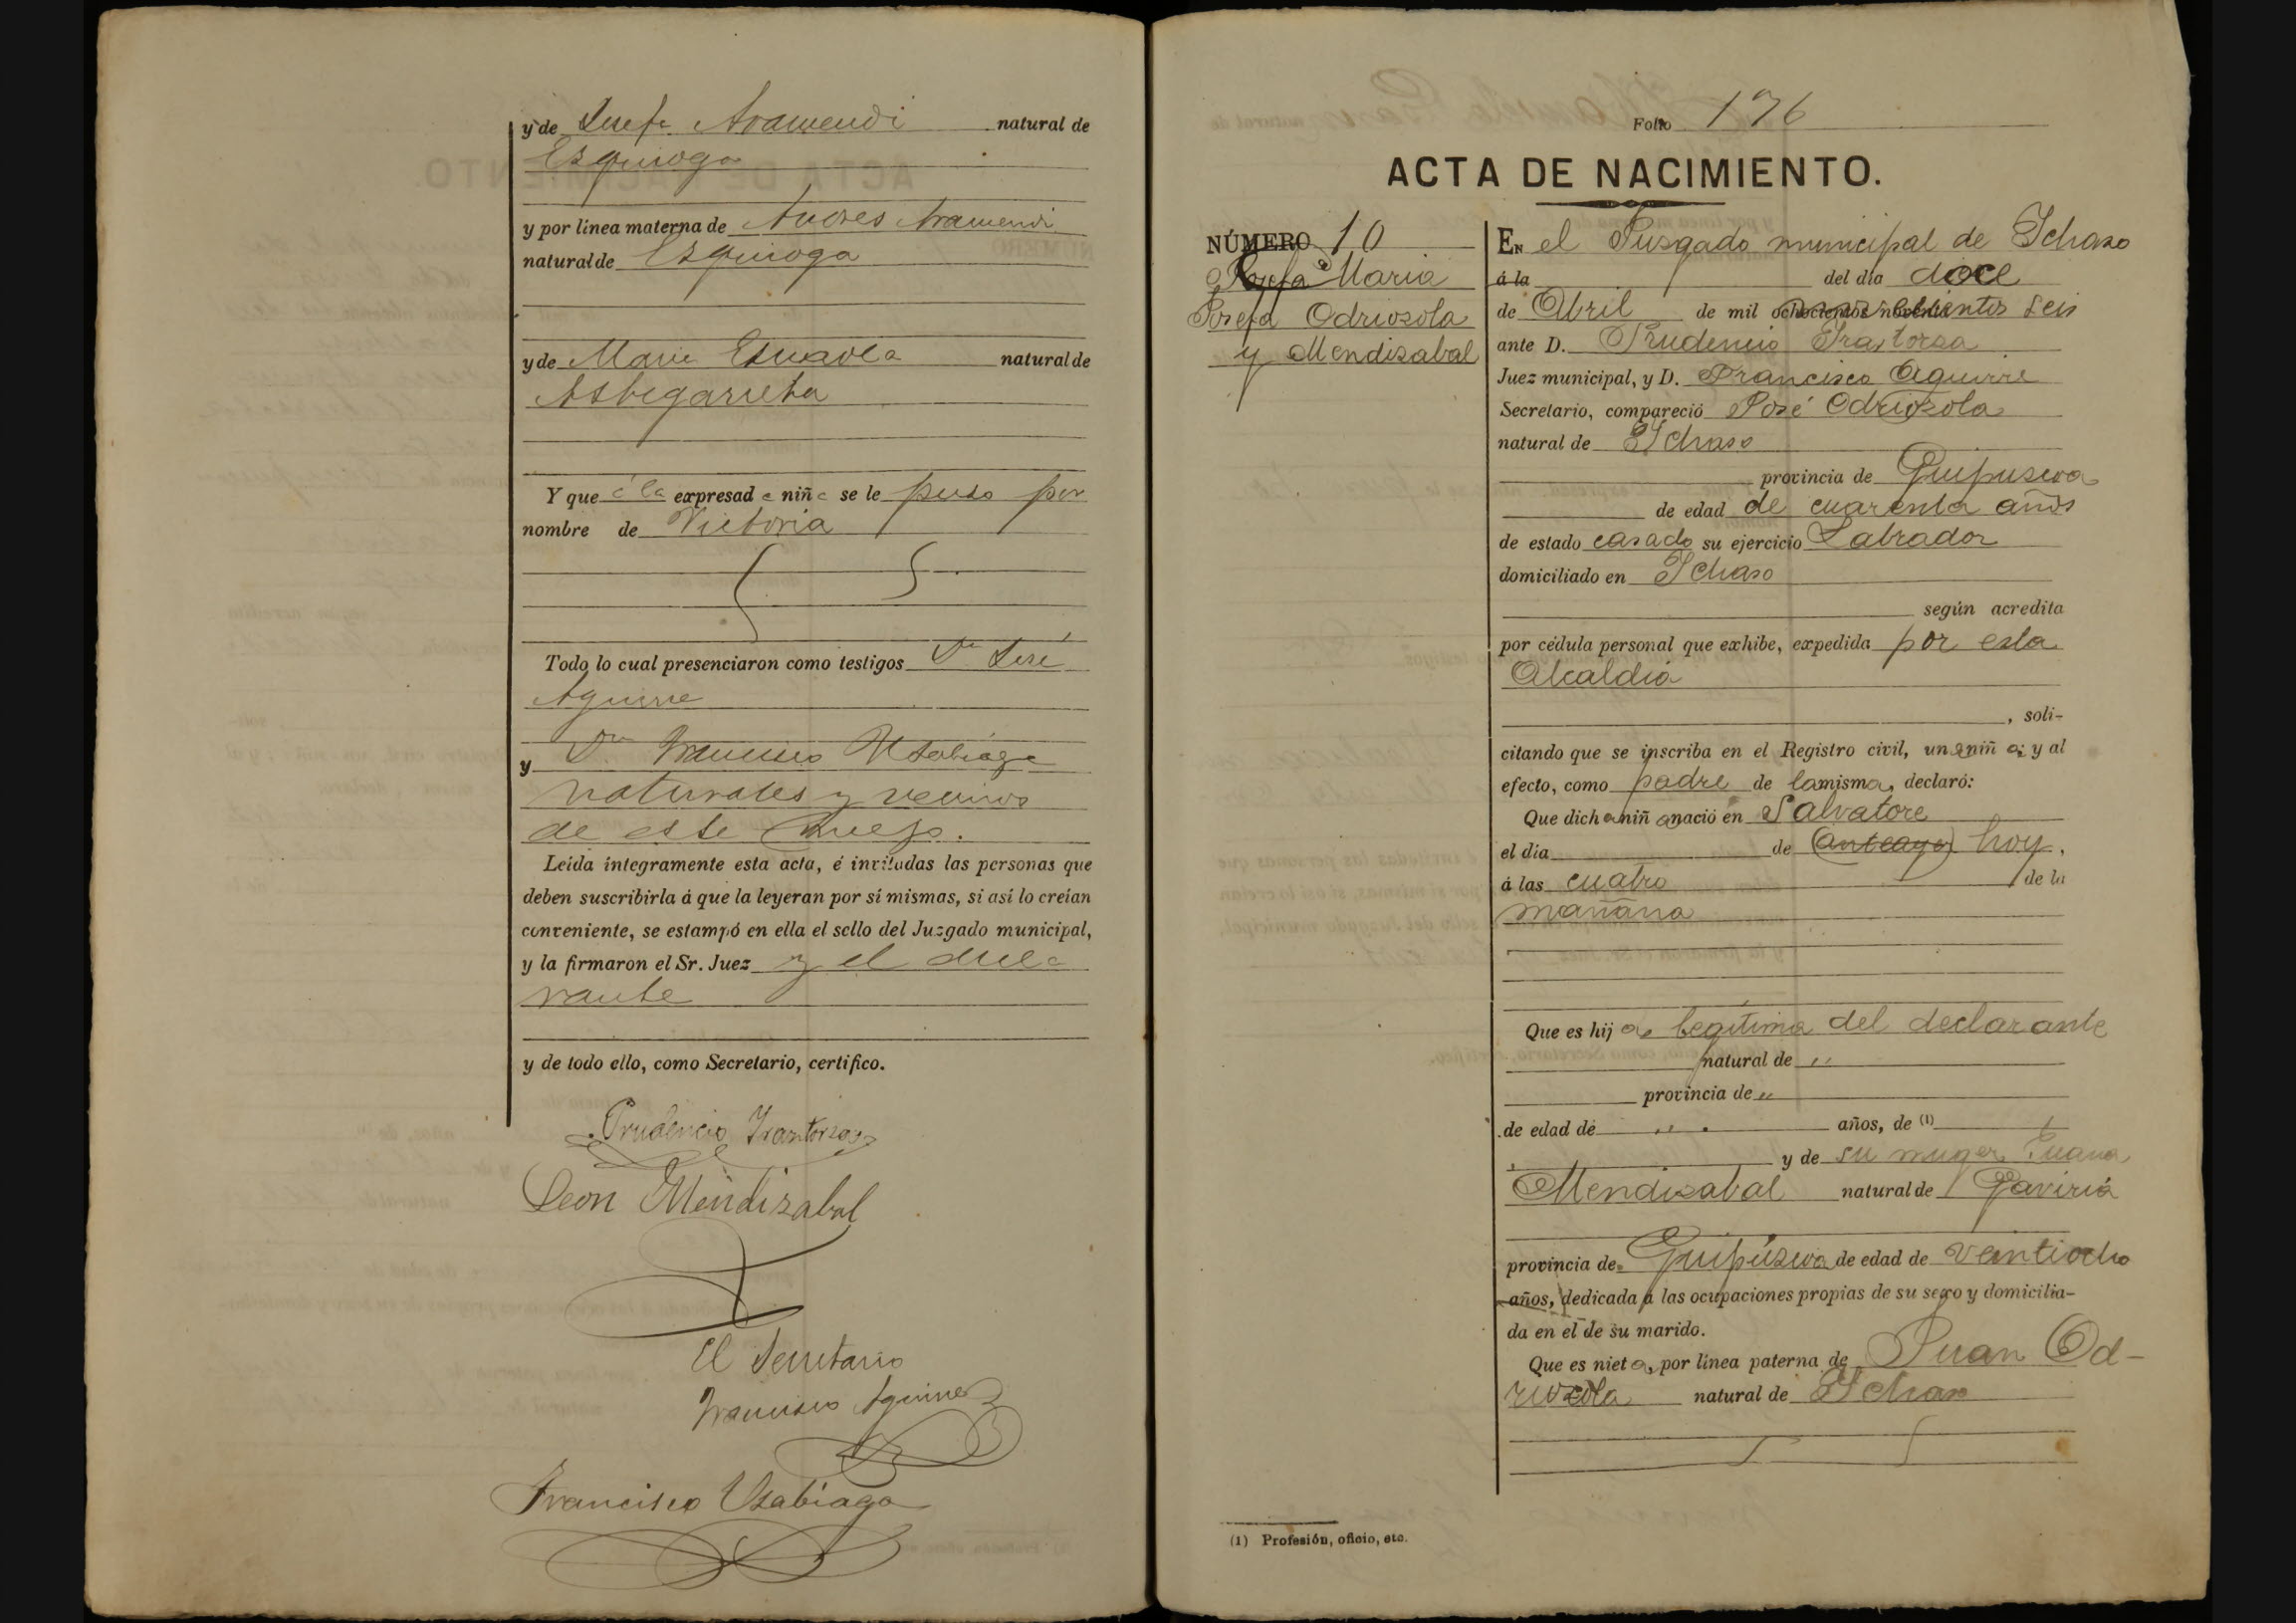 y de Josefa Aramendi natural de
Ezquioga
y por línea materna de Andres Aramendi
natural de Ezquioga
y de Maria Esnaola natural de
Astigarreta
Y que á la expresada niña se le puso por
nombre de Victoria
Todo lo cual presenciaron como testigos Dn José
Aguirre
y Dn Francisco Usabiaga
naturales y vecinos
de este
Leída íntegramente esta acta, é invitadas las personas que
deben suscribirla á que la leyeran por sí mismas, si así lo creían
conveniente, se estampó en ella el sello del Juzgado municipal,
y la firmaron el Sr. Juez y el decla
rante
y de todo ello, como Secretario, certifico.
Prudencio Irastorza
Leon Mendizabal
El Secretario
Francisco Aguirre
Francisco Usabiaga
Folio 176
ACTA DE NACIMIENTO.
NÚMERO 10
Josefa Maria
Josefa Odriozola
y Mendizabal
EN el Juzgado municipal de Ichaso
á la del día doce
de Abril de mil ochocientos noventa novecientos seis
ante D. Prudencio Irastorza
Juez municipal, y D. Francisco Aguirre
Secretario, compareció José Odriozola
natural de Ichaso
provincia de Guipuzcoa
de edad de cuarenta años
de estado casado su ejercicio Labrador
domiciliado en Ichaso
según acredita
por cédula personal que exhibe, expedida por esta
Alcaldia
, soli-
citando que se inscriba en el Registro civil, una niña; y al
efecto, como padre de la misma, declaró:
Que dicha niña nació en Salvatore
el día de (anteayer) hoy,
á las cuatro de la
mañana
Que es hija legitima del declarante
natural de "
provincia de "
de edad de " años, de (1)
y de su muger Juana
Mendizabal natural de Gaviria
provincia de Guipúzcoa de edad de veintiocho
años, dedicada á las ocupaciones propias de su sexo y domicilia-
da en el de su marido.
Que es nieta, por línea paterna de Juan Od-
riozola natural de Ichaso
(1) Profesión, oficio, etc.